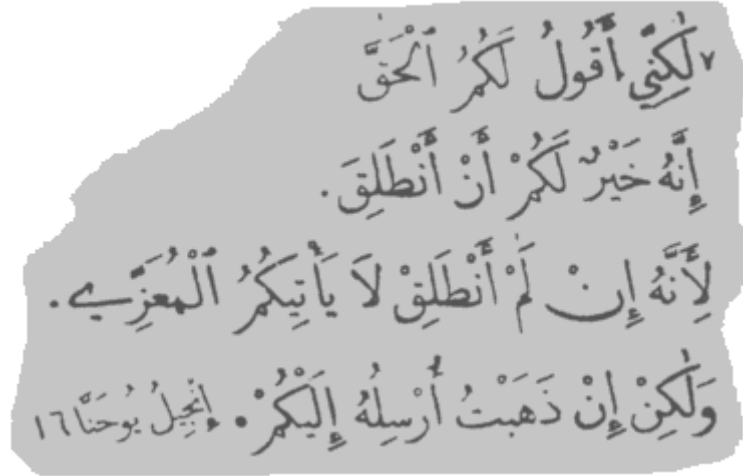 ٧ لَٰكِنِّي أَقُولُ لَكُمُ ٱلْحَقَّ
إِنَّهُ خَيْرٌ لَكُمْ أَنْ أَنْطَلِقَ.
لِأَنَّهُ إِنْ لَمْ أَنْطَلِقْ لَا يَأْتِيكُمُ ٱلْمُعَزِّي.
وَلَٰكِنْ إِنْ ذَهَبْتُ أُرْسِلُهُ إِلَيْكُمْ. إِنْجِيلُ يُوحَنَّا ١٦